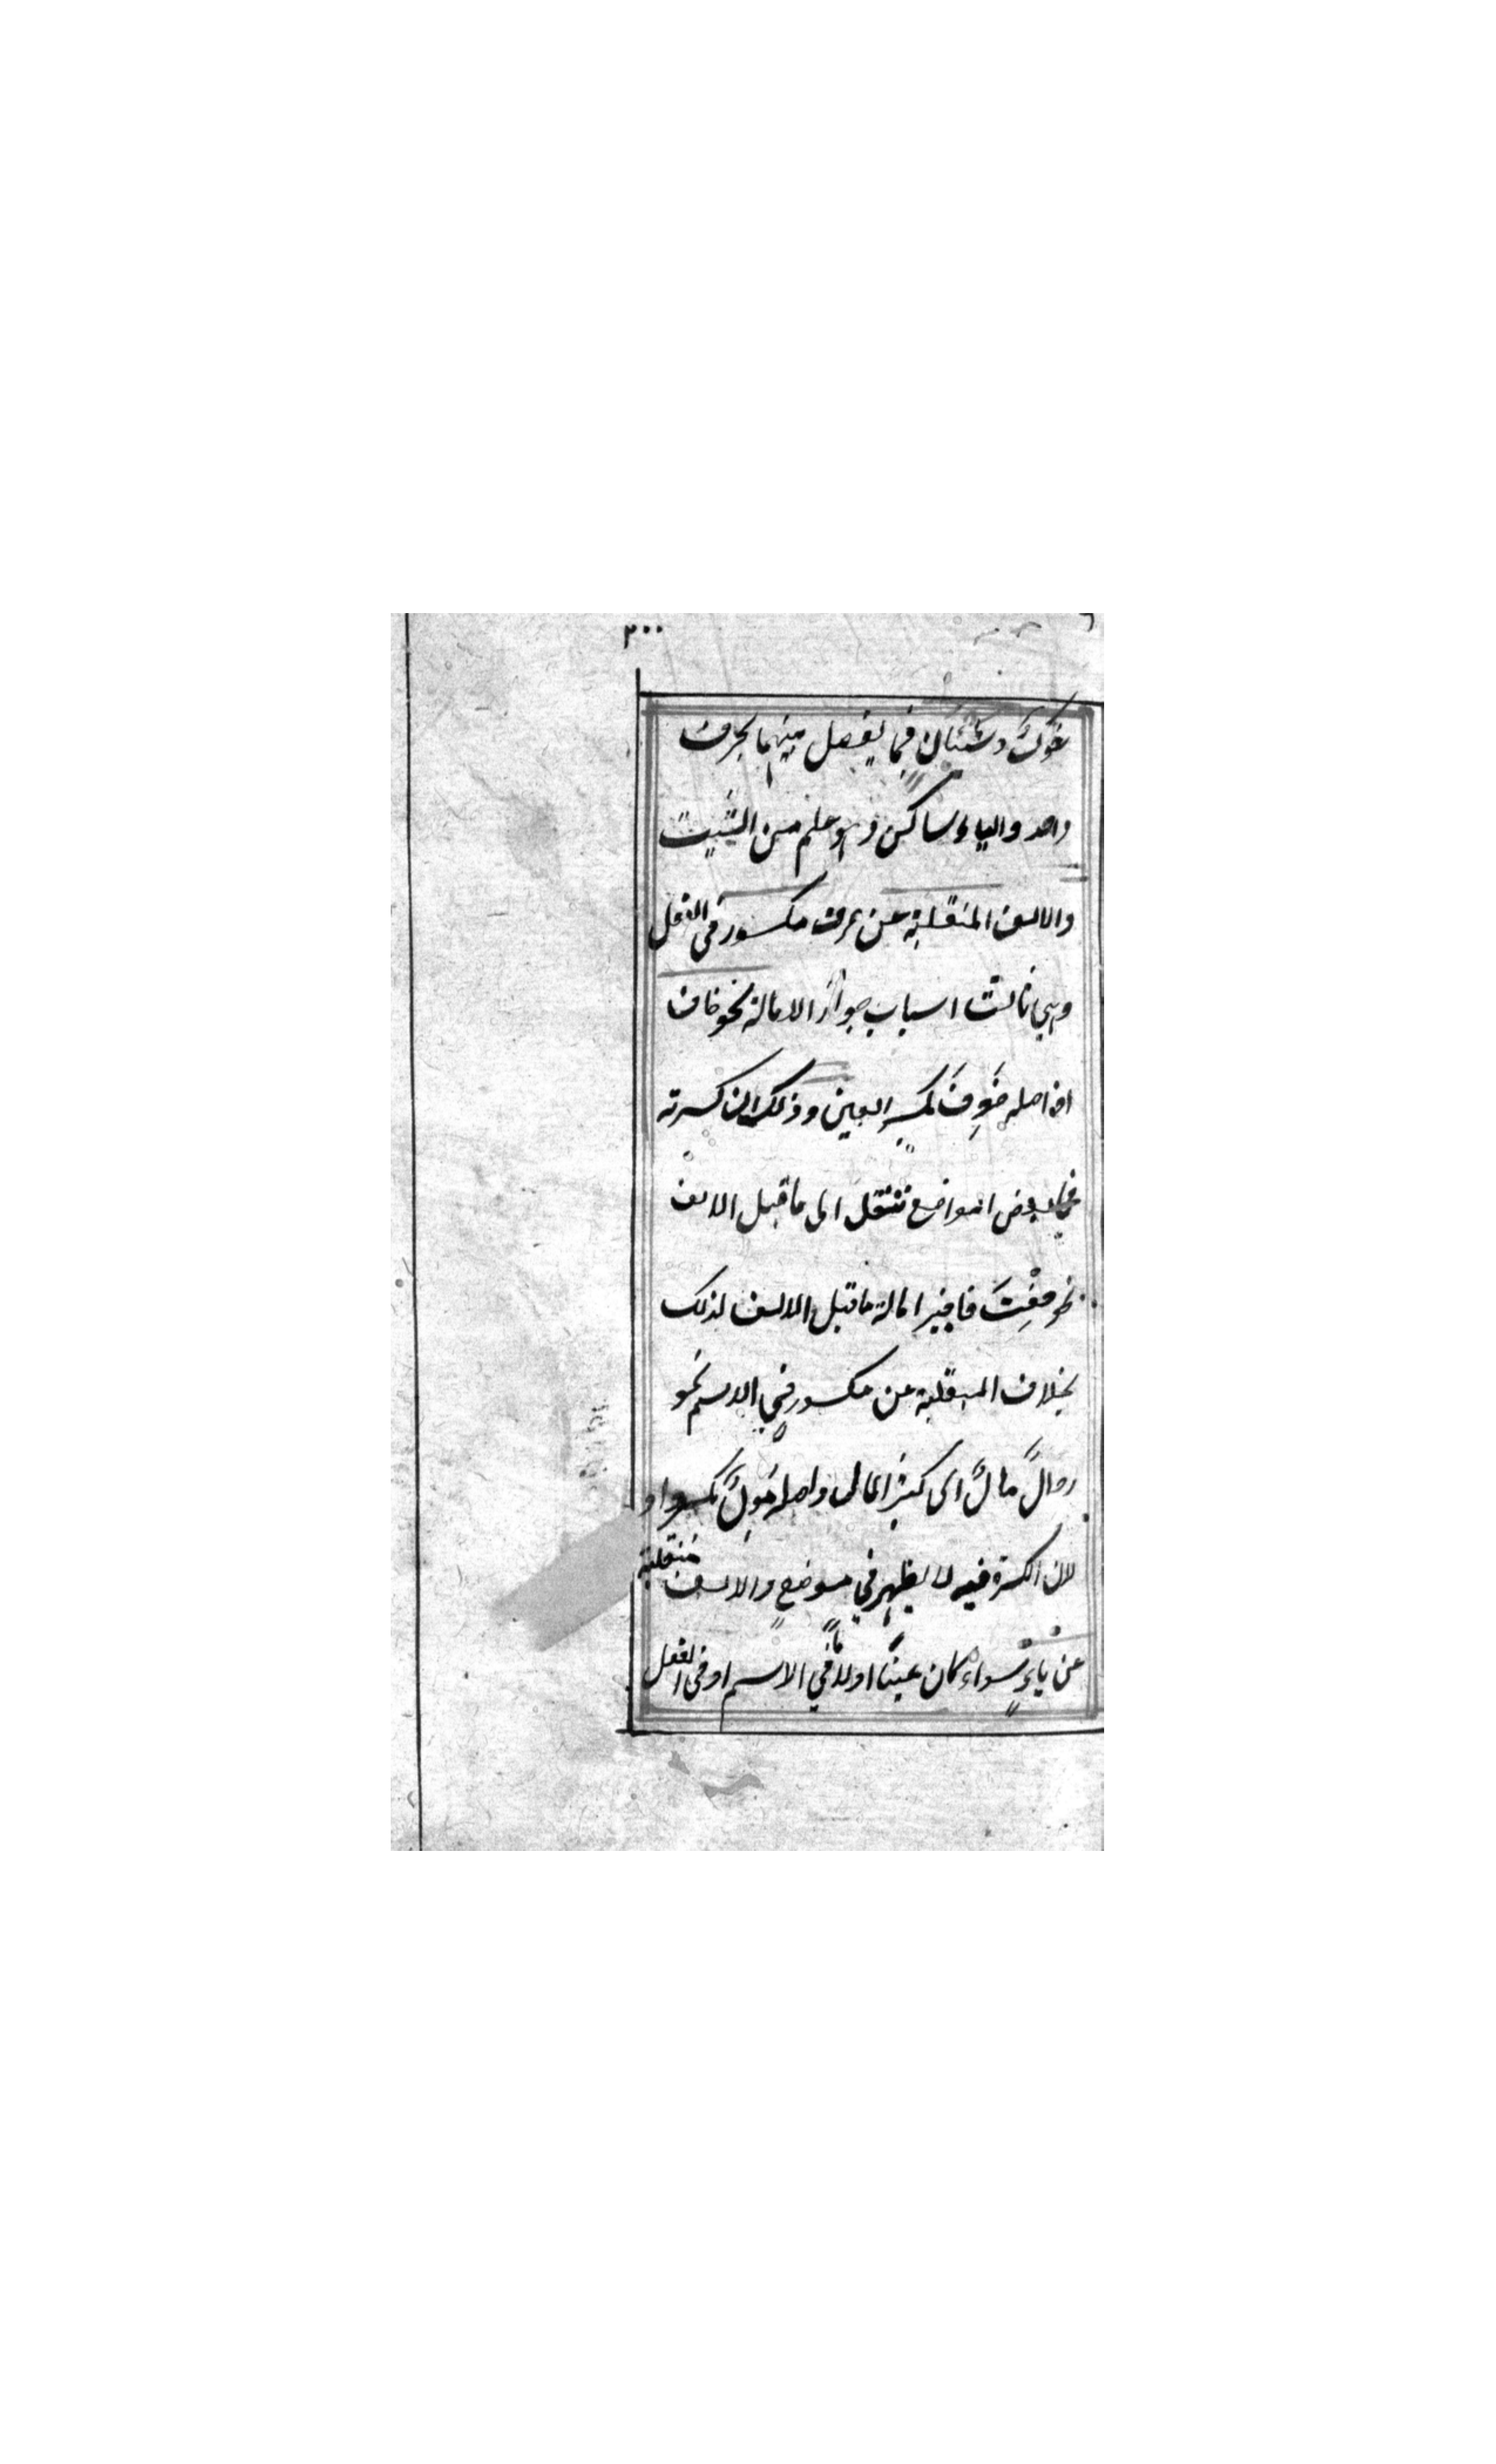 ٣٠٠
وشَيْبَان فيما يفصل بينهما بحرف
واحد والياء ساكن وهو علم من الشيب
والالف المنقلبة عن حرف مكسور في الفعل
وهي ثالث اسباب جواز الامالة نحو خاف
اذ اصله خَوِفَ بكسر العين وذلك لان كسرته
في بعض المواضع تنتقل الى ما قبل الالف
نحو خِفْتَ فاجيز امالة ما قبل الالف لذلك
بخلاف المنقلبة عن مكسور في الاسم نحو
رجال مال اى كثير المال واصله مَوِلٌ بكسر واو
لان الكسرة فيه لا يظهر في موضع والالف منقلبة
عن ياءٍ سواء كان عينًا او لامًا في الاسم او في الفعل